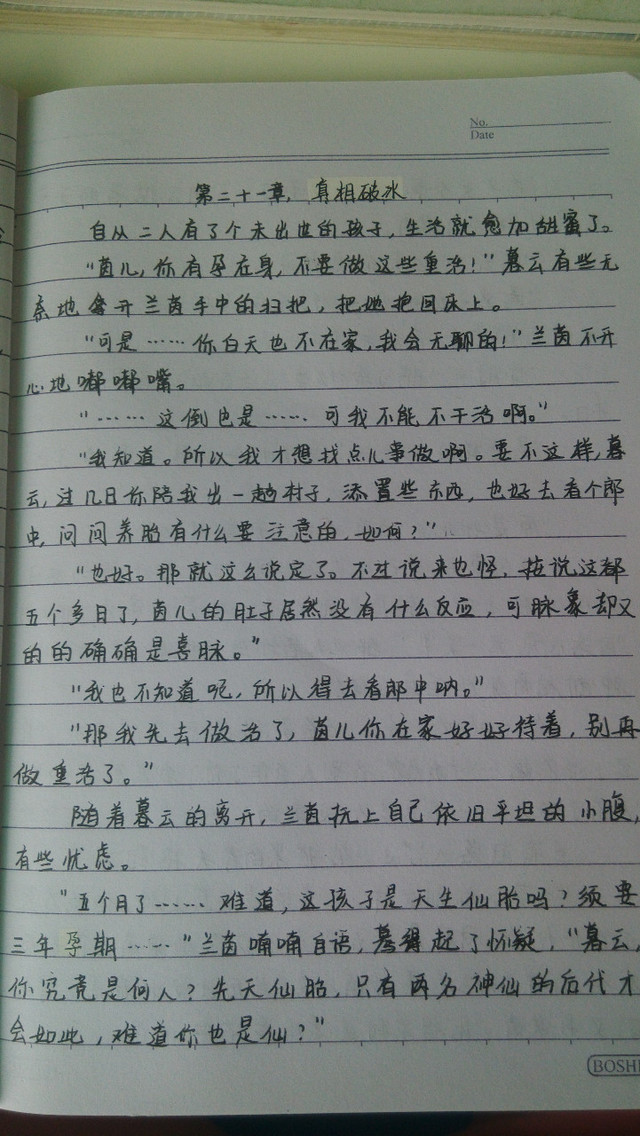 No.
Date
第二十一章. 真相破冰
自从二人有了个未出世的孩子, 生活就愈加甜蜜了。
"茵儿, 你有孕在身, 不要做这些重活!"暮云有些无
奈地拿开兰茵手中的扫把, 把她抱回床上。
"可是……你白天也不在家, 我会无聊的!"兰茵不开
心地嘟嘟嘴。
"……这倒也是……可我不能不干活啊。"
"我知道。所以我才想找点儿事做啊。要不这样, 暮
云, 过几日你陪我出一趟村子, 添置些东西, 也好去看个郎
中, 问问养胎有什么要注意的, 如何?"
"也好。那就这么说定了。不过说来也怪, 按说这都
五个多月了, 茵儿的肚子居然没有什么反应, 可脉象却又
的的确确是喜脉。"
"我也不知道呢, 所以得去看郎中呐。"
"那我先去做活了, 茵儿你在家好好待着, 别再
做重活了。"
随着暮云的离开, 兰茵抚上自己依旧平坦的小腹,
有些忧虑。
"五个月了……难道, 这孩子是天生仙胎吗? 须要
三年孕期……"兰茵喃喃自语, 起了怀疑, "暮云,
你究竟是何人? 先天仙胎, 只有两名神仙的后代才
会如此, 难道你也是仙?"
BOSHI